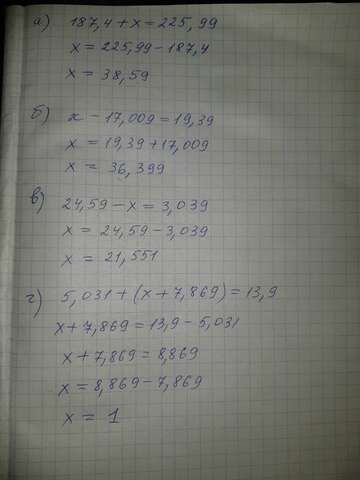 а) 187,4 + x = 225,99
x = 225,99 - 187,4
x = 38,59
б) x - 17,009 = 19,39
x = 19,39 + 17,009
x = 36,399
в) 24,59 - x = 3,039
x = 24,59 - 3,039
x = 21,551
г) 5,031 + (x + 7,869) = 13,9
x + 7,869 = 13,9 - 5,031
x + 7,869 = 8,869
x = 8,869 - 7,869
x = 1